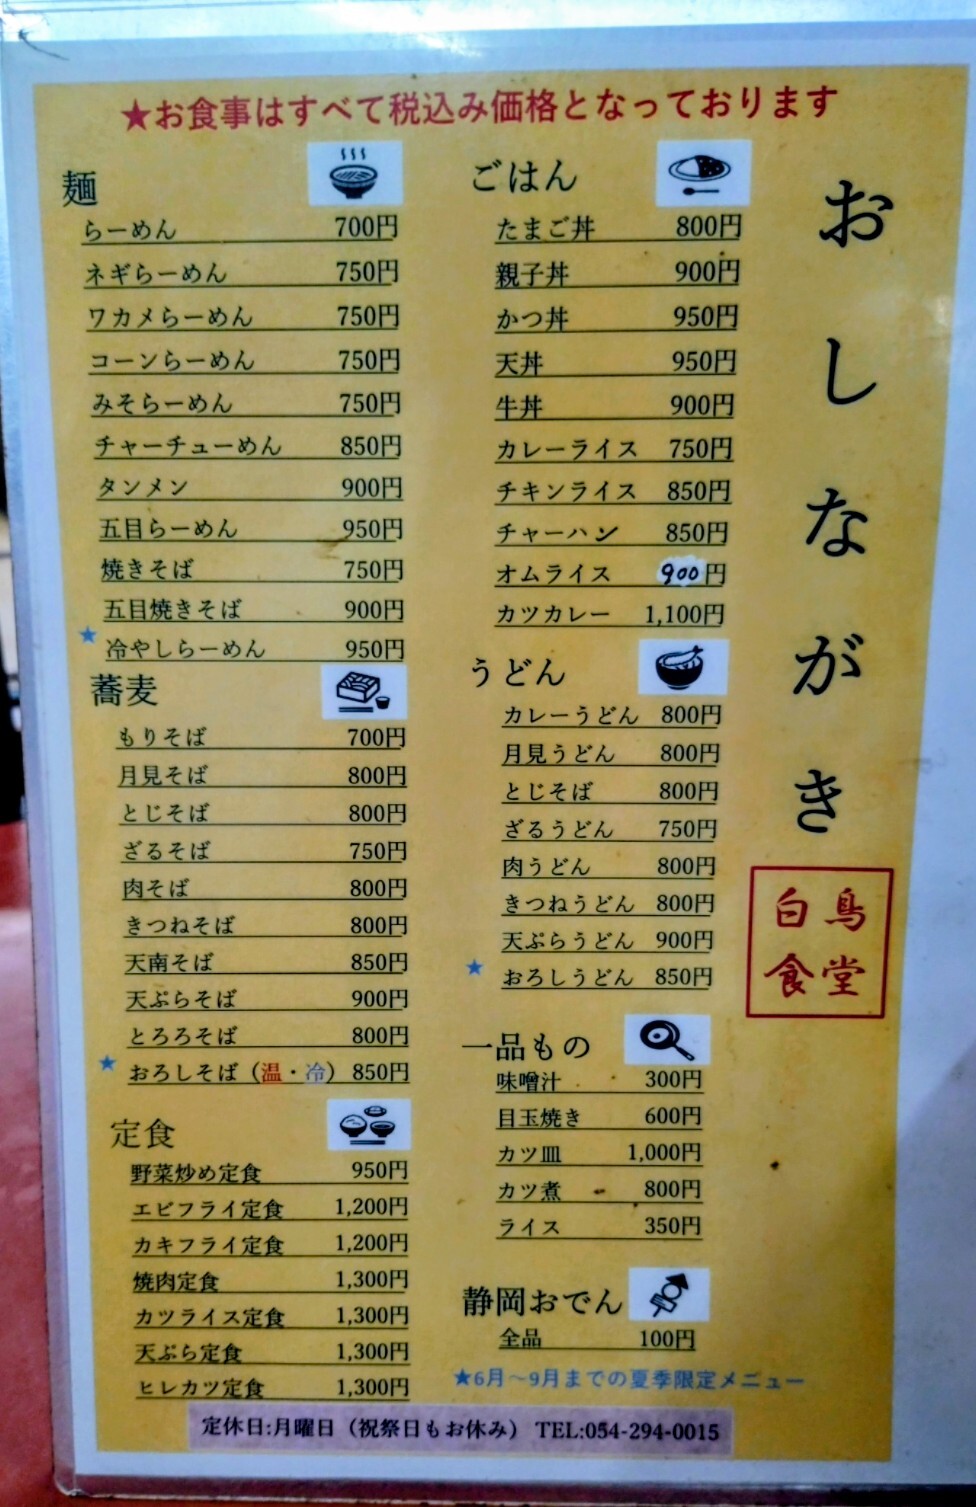 ★お食事はすべて税込み価格となっております
おしながき
白鳥
食堂
麺
らーめん 700円
ネギらーめん 750円
ワカメらーめん 750円
コーンらーめん 750円
みそらーめん 750円
チャーチューめん 850円
タンメン 900円
五目らーめん 950円
焼きそば 750円
五目焼きそば 900円
★冷やしらーめん 950円
蕎麦
もりそば 700円
月見そば 800円
とじそば 800円
ざるそば 750円
肉そば 800円
きつねそば 800円
天南そば 850円
天ぷらそば 900円
とろろそば 800円
★おろしそば（温・冷） 850円
定食
野菜炒め定食 950円
エビフライ定食 1,200円
カキフライ定食 1,200円
焼肉定食 1,300円
カツライス定食 1,300円
天ぷら定食 1,300円
ヒレカツ定食 1,300円
ごはん
たまご丼 800円
親子丼 900円
かつ丼 950円
天丼 950円
牛丼 900円
カレーライス 750円
チキンライス 850円
チャーハン 850円
オムライス 900円
カツカレー 1,100円
うどん
カレーうどん 800円
月見うどん 800円
とじそば 800円
ざるうどん 750円
肉うどん 800円
きつねうどん 800円
天ぷらうどん 900円
★おろしうどん 850円
一品もの
味噌汁 300円
目玉焼き 600円
カツ皿 1,000円
カツ煮 800円
ライス 350円
静岡おでん
全品 100円
★6月～9月までの夏季限定メニュー
定休日:月曜日（祝祭日もお休み） TEL:054-294-0015